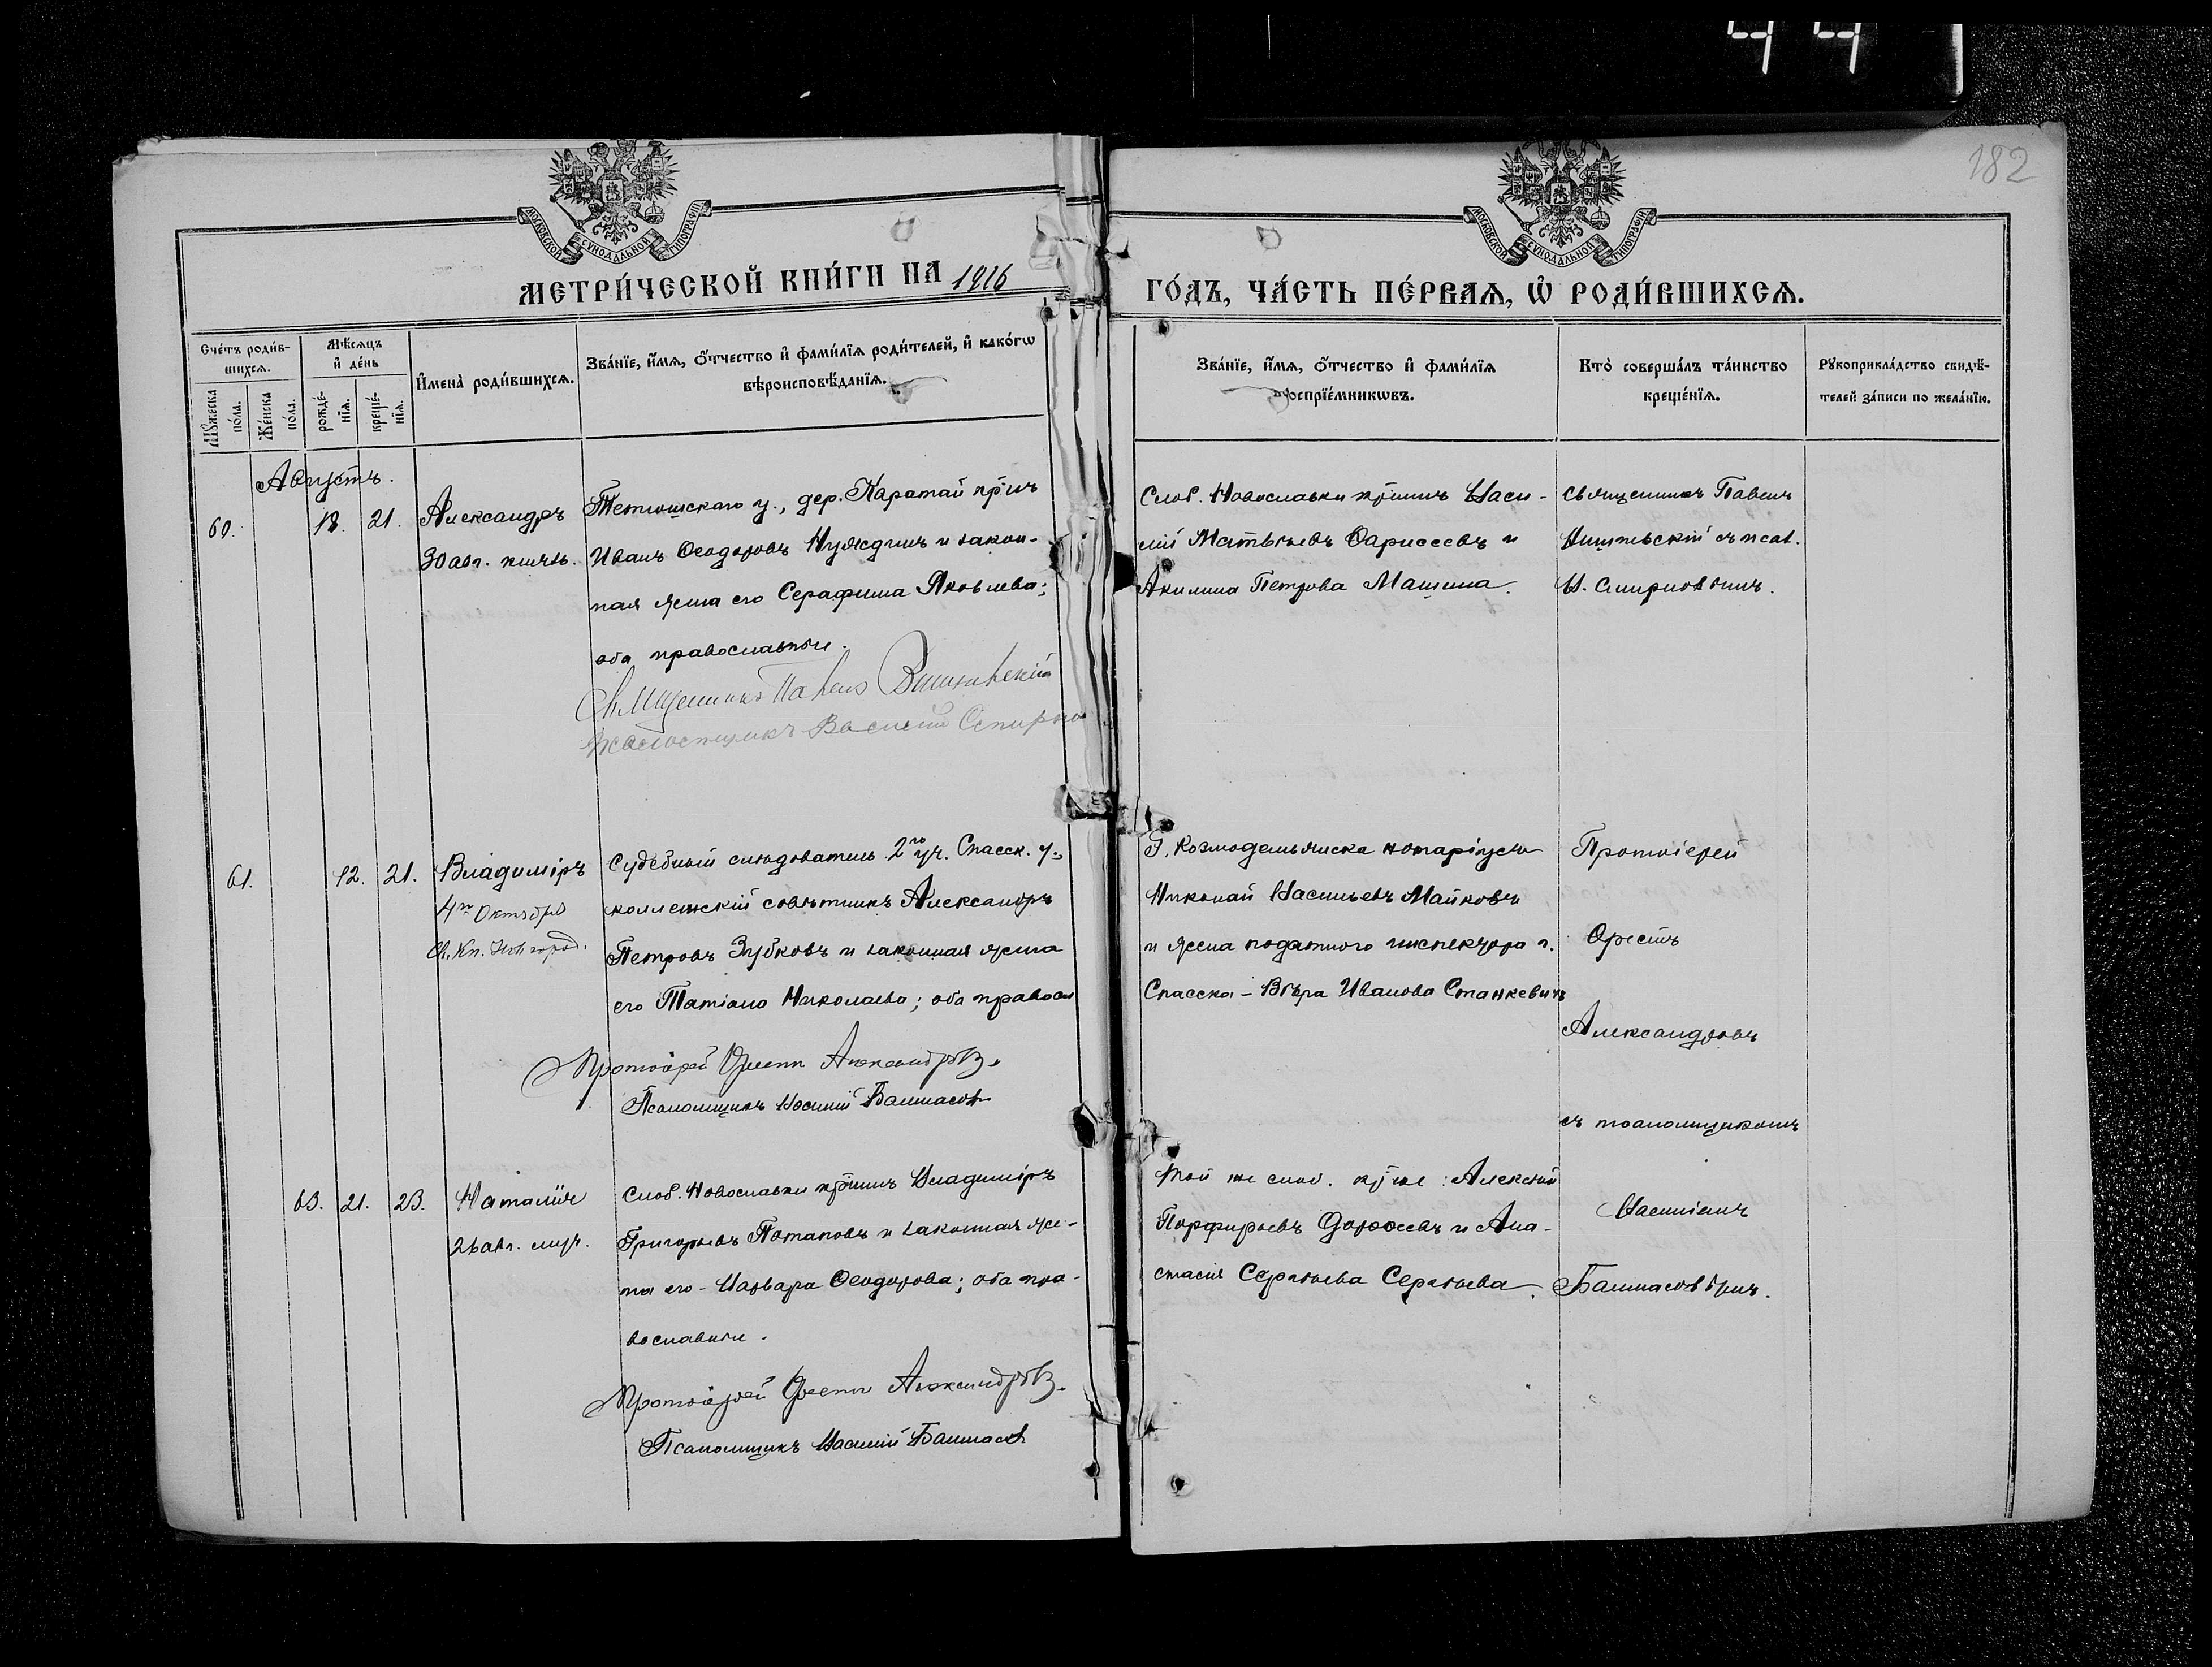 44
182
МОСКОВСКОЙ СѴНОДАЛЬНОЙ ТИПОГРАФІИ
МОСКОВСКОЙ СѴНОДАЛЬНОЙ ТИПОГРАФІИ
МЕТРИ́ЧЕСКОЙ КНИ́ГИ НА 1916
ГО́ДЪ, ЧА́СТЬ ПЕ́РВАѦ, Ѡ҆ РОДИ́ВШИХСѦ.
Сче́тъ роди́в-
шихсѧ.
Мѣ́сѧцъ
и҆ де́нь
Мꙋ́жеска
по́ла.
Же́нска
по́ла.
рожде́-
нїѧ.
креще́-
нїѧ.
И҆мена̀ роди́вшихсѧ.
Зва́нїе, и҆́мѧ, ѻ҆́тчество и҆ фами́лїѧ роди́телей, и҆ како́гѡ
вѣроисповѣ́данїѧ.
Зва́нїе, и҆́мѧ, ѻ҆́тчество и҆ фами́лїѧ
воспрїе́мникѡвъ.
Кто̀ соверша́лъ та́инство
креще́нїѧ.
Рꙋкоприкла́дство свидѣ́-
телей за́писи по жела́нїю.
Августъ.
60. 18. 21. Александръ
30 авг.
Тетюшскаго у., дер. Каратай кр̃нъ
Иванъ Ѳеодоровъ Нуждинъ и закон-
ная жена его Серафима Яковлева;
оба православные.
Священникъ Павелъ
Псаломщикъ Василій Смирно
Слоб. Новославки кр̃нинъ Васи-
лій Матвѣевъ Фарисеевъ и
Акилина Петрова Машина.
Священникъ Павелъ
съ псал.
В. Смирновымъ.
61. 12. 21. Владиміръ
4го Октября
Св. Кн. Новгород.
Судебный слѣдователь 2го уч. Спасск. у.,
коллежскій совѣтникъ Александръ
Петровъ Зубковъ и законная жена
его Татіана Николаева; оба правосл
Протоіерей Орестъ Александровъ.
Псаломщикъ Василій Баимасов
Г. Козмодемьянска нотаріусъ
Николай Васильевъ Майковъ
и жена податного инспектора г.
Спасска - Вѣра Иванова Станкевичъ
Протоіерей
Орестъ
Александровъ
съ псаломщикомъ
Василіемъ
Баимасовымъ.
63. 21. 23. Наталія
26 авг. муч.
Слоб. Новославки кр̃нинъ Владиміръ
Григорьевъ Потаповъ и законная же-
на его - Варвара Ѳеодорова; оба пра-
вославные.
Протоіерей Орестъ Александровъ.
Псаломщикъ Василій Баимасов
Той же слоб. кр̃не: Алексѣй
Порфирьевъ и Ана-
стасія Сергѣева Сергѣева.